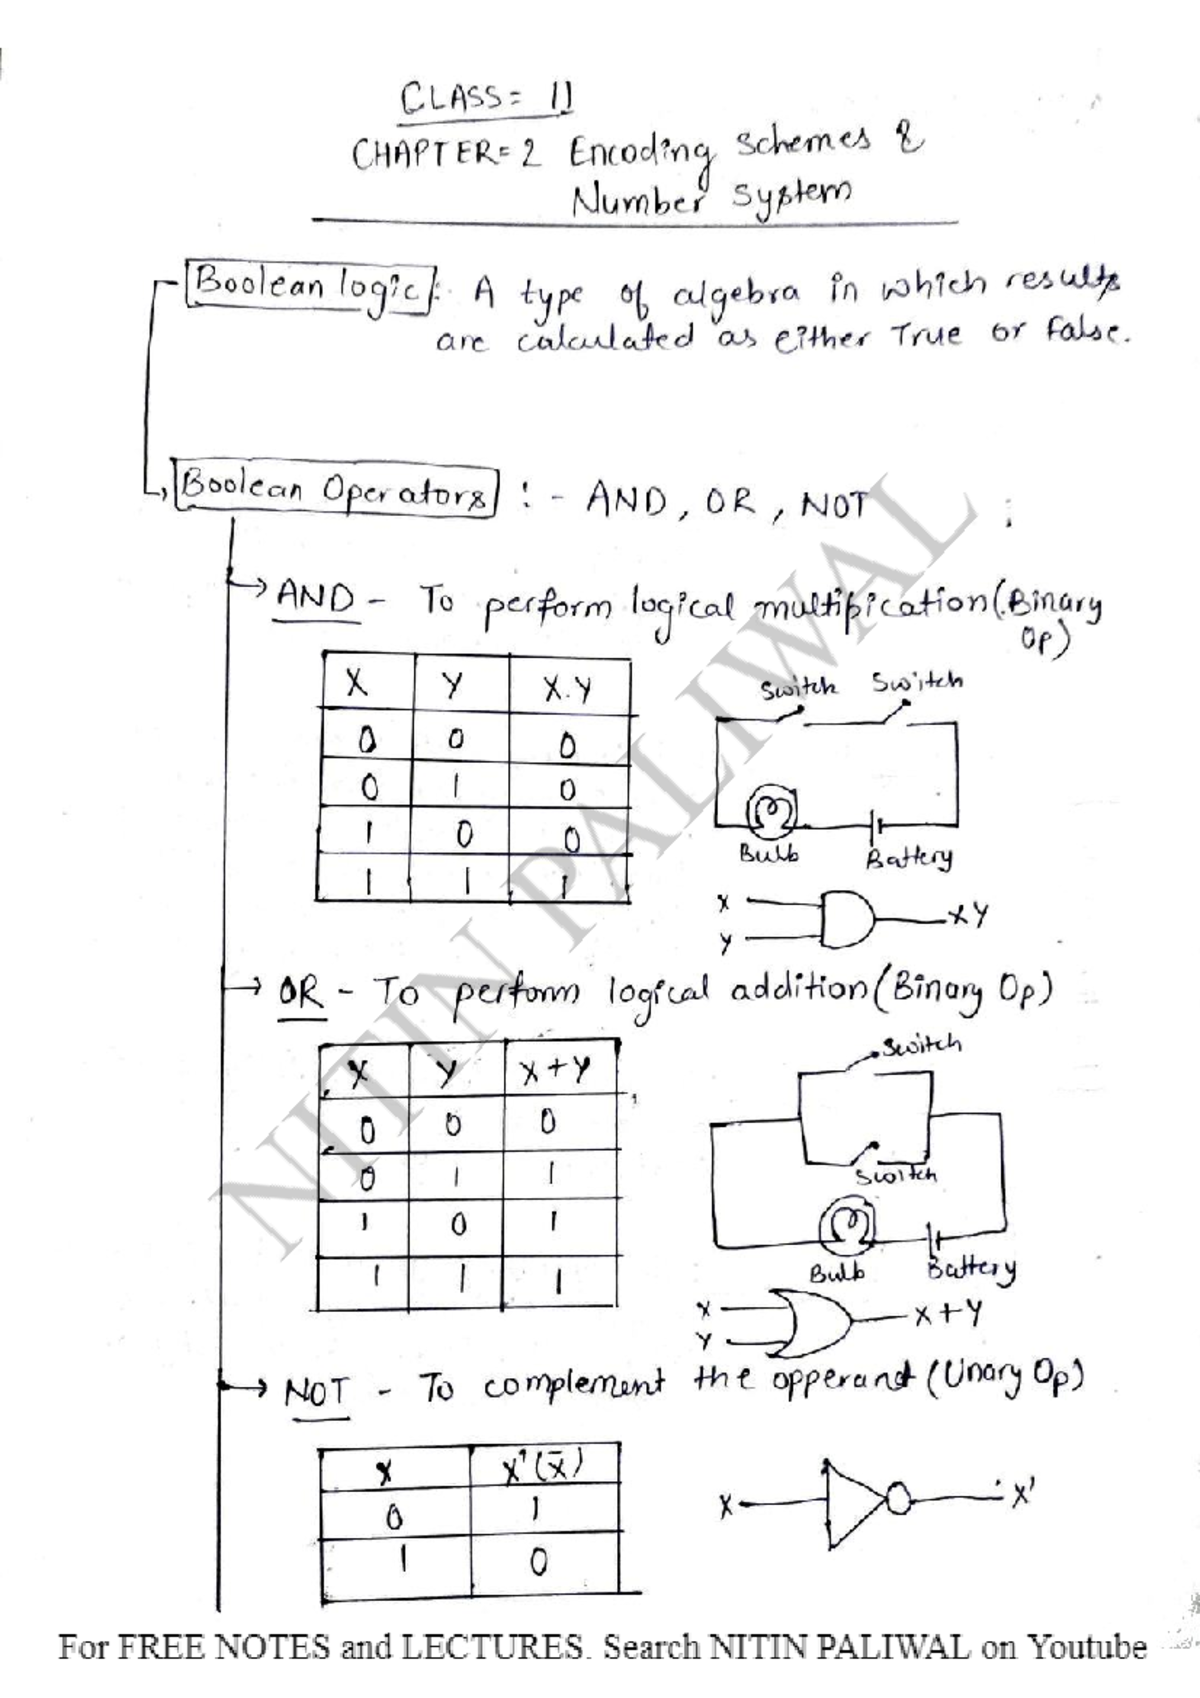 CLASS = 11
CHAPTER = 2 Encoding Schemes &
Number System
Boolean logic : A type of algebra in which results
are calculated as either True or False.
Boolean Operators : - AND, OR, NOT
AND - To perform logical multipication (Binary
Op)
X Y X.Y
0 0 0
0 1 0
1 0 0
1 1 1
Switch Switch
Bulb Battery
X
Y
XY
OR - To perform logical addition (Binary Op)
X Y X+Y
0 0 0
0 1 1
1 0 1
1 1 1
Switch
Switch
Bulb Battery
X
Y
X+Y
NOT - To complement the opperand (Unary Op)
X X'(X̄)
0 1
1 0
X X'
NITIN PALIWAL
For FREE NOTES and LECTURES. Search NITIN PALIWAL on Youtube